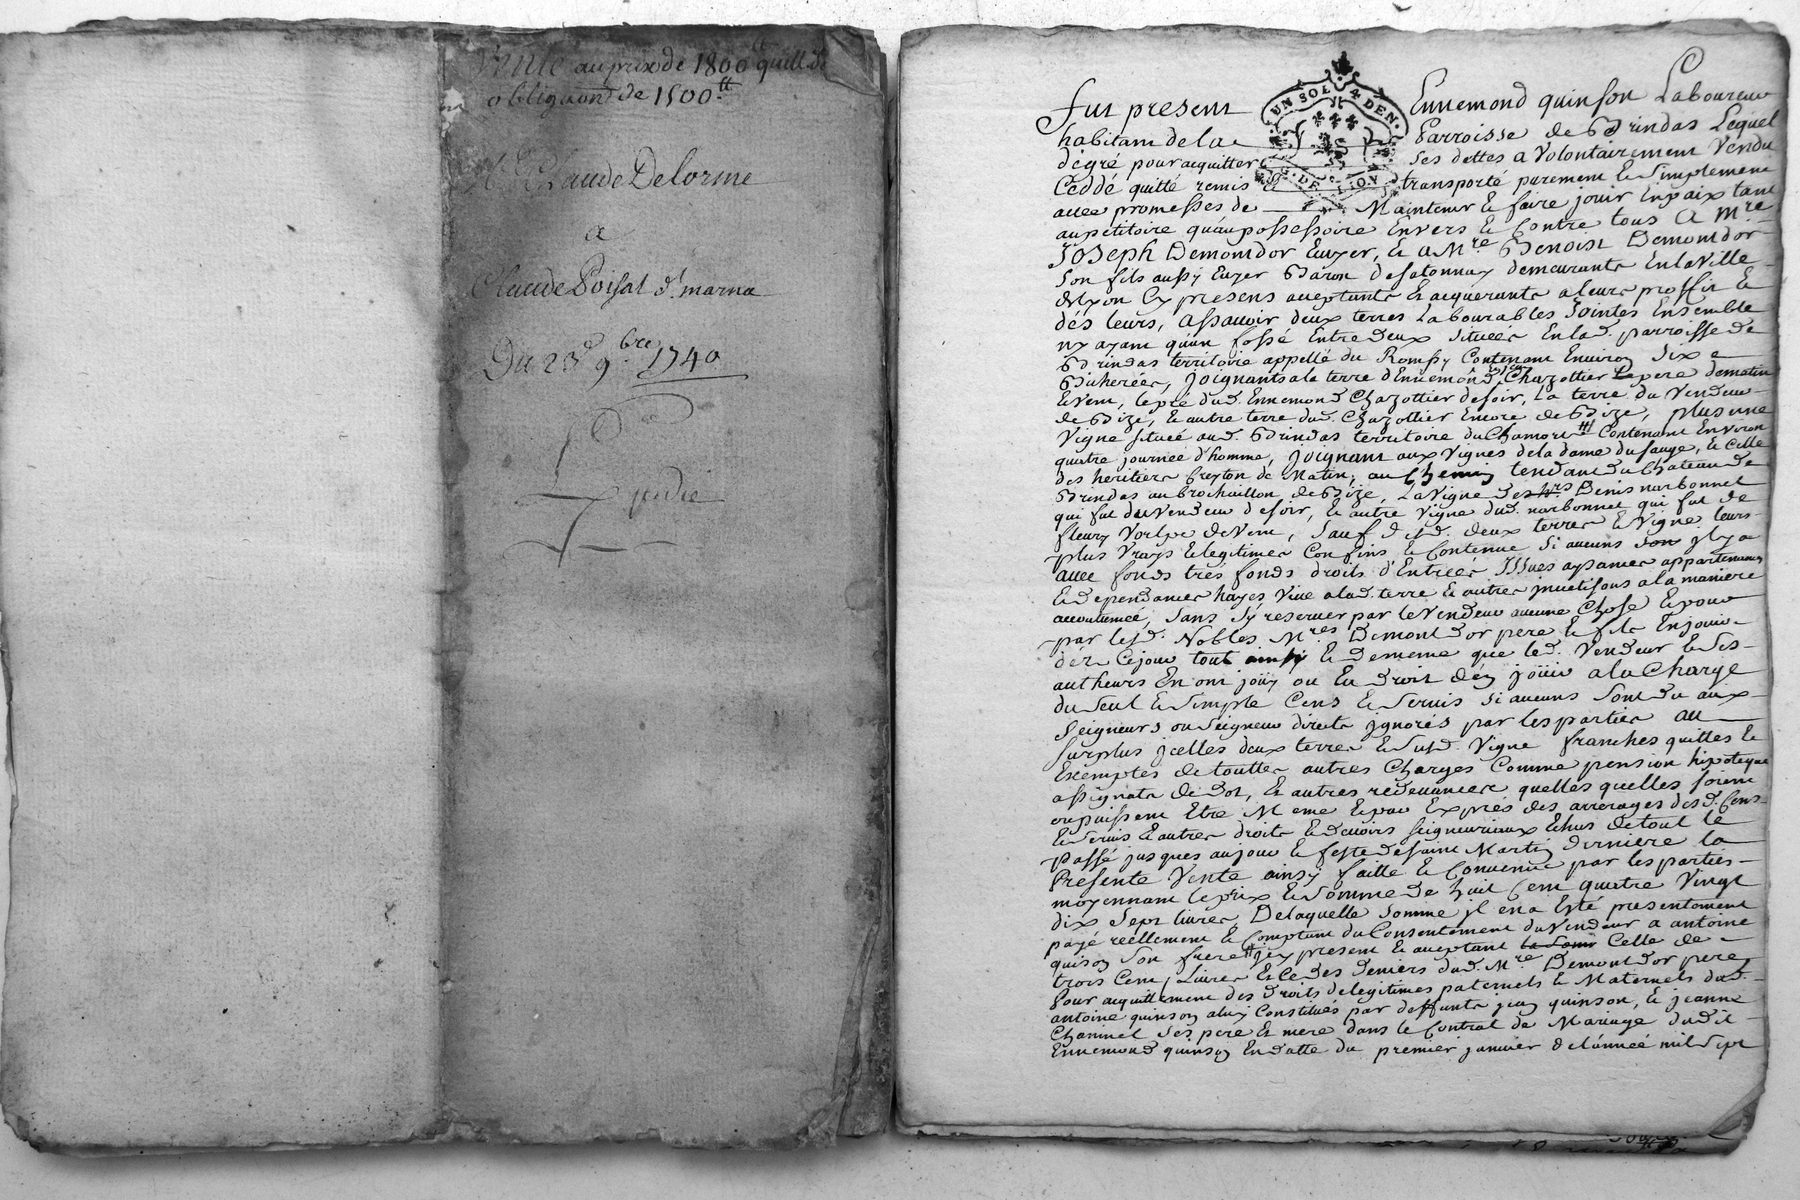 Vente au prix de 1800ᵗᵗ quitt. de
obligãon de 1500ᵗᵗ
Mʳ Claude Delorme
a
Claude Poisat dᵗ marna
Du 23ᵉ 9.bre 1740
Expedie
UN SOL 4 DEN.
G. DE LYON
fut present Ennemond quinson Laboureur
habitant de la Parroisse de Brindas Lequel
de gré pour acquitter ses dettes a Volontairement Vendu
Ceddé quitté remis transporté purement & simplement
avec promesses de Maintenir & faire jouir En paix tant
au petitoire qu'au possessoire Envers & Contre tous A Mre
Joseph Demontdor Ecuyer, & a Mre Benoist Demontdor
son fils aussy Ecuyer Baron de satonnay demeurants En la Ville
de Lyon Cy presens acceptants & acquerants a leurs proffit &
dés leurs, Assavoir deux terres Labourables Jointes Ensemble
ny ayant qu'un fossé Entre deux situées En lad. parroisse de
Brindas territoire appellé du Rompy Contenant Environ six
Bicherées, Joignants a la terre d'Ennemond Chazottier Le pere de matin
& Vent, le pré dud. Ennemond Chazottier de soir, La terre du Vendeur
de Bize, & autre terre dud. Chazottier Encore de Bize, plus une
Vigne située aud. Brindas territoire du Chamort Contenant Environ
quatre journée d'homme, joignant aux Vignes de la dame du fauge, & Celle
des heritiers Creyton de Matin, au Chemin tendant du Château de
Brindas au brochaillon de Bize, La Vigne des hrs Denis narbonnet
qui fut du Vendeur de soir, & autre Vigne dud. narbonnet qui fut de
fleury Vorlpe de Vent, sauf desd. deux terres & Vigne leurs
plus Vrays & legitimes Confins & Contenue si aucuns son jl y a
avec fonds trés fonds droits d'Entrées Issues aysances appartenances
& dependances hayes Vive a lad. terre & autres jnvetisons a la maniere
accoutumée, sans s'y reserver par le Vendeur aucune Chose & pour
par lesd. Nobles Mres Demontdor pere & fils En jouir
dèz Cejour tout ainsy & de meme que led. Vendeur & ses
autheurs En ont joüy ou Eu droit d'éy joüir a la Charge
du seul & simple Cens & servis si aucuns sont du aux
Seigneurs ou seigneur directs jgnorés par les parties au
surplus jcelles deux terres & susd. Vigne franches quittes &
Exemptes de touttes autres Charges Comme pension hipoteque
assignats de dot, & autres redevances quelles quelles soient
ou puissent Etre Meme & par Exprés des arrerages desd. Cens
& servis & autres droits & devoirs seigneuriaux Echus de tout le
Passé jusques au jour & feste de saint Martin derniere la
Presente Vente ainsy faitte & Convenue par les parties
moyennant le prix & somme de huit Cent quatre Vingt
dix sept livres De laquelle somme jl en a Eté presentement
payé réellement & Comptant du Consentement du Vendeur a antoine
quinson son frere jcy present & acceptant la som Celle de
trois Cent Livres & Ce des deniers dud. Mre Demontdor pere
Pour acquittement des droits de legitimes paternels & Maternels dud.
antoine quinson a luy Constitués par deffunts jean quinson, & jeanne
Chaninel ses pere & mere dans le Contrat de Mariage dudit
Ennemond quinson En datte du premier janvier de l'année mil sept